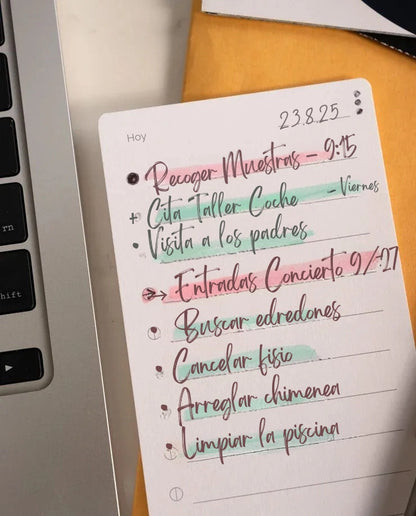 rn
shift
Hoy
23.8.25
Recoger Muestras – 9:15
+ Cita Taller Coche – Viernes
• Visita a los padres
Entradas Concierto 9/-27
Buscar edredones
Cancelar fisio
Arreglar chimenea
Limpiar la piscina